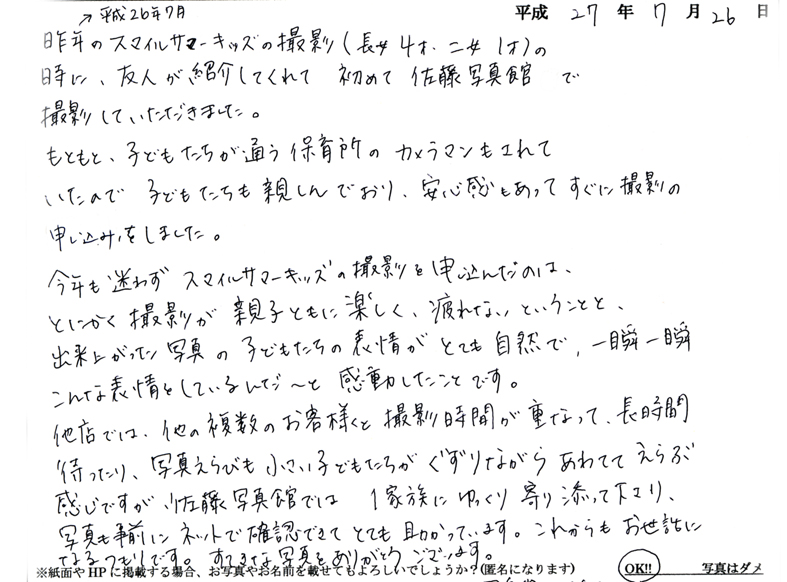 平成26年7月
平成 27 年 7 月 26 日
昨年のスマイルサマーキッズの撮影(長女4才、二女1才)の
時に、友人が紹介してくれて 初めて 佐藤写真館 で
撮影していただきました。
もともと、子どもたちが通う保育所のカメラマンもされて
いたので 子どもたちも親しんでおり、安心感もあってすぐに撮影の
申し込みをしました。
今年も迷わず スマイルサマーキッズの撮影を申込んだのは、
とにかく撮影が親子ともに楽しく、疲れないということと、
出来上がった写真の子どもたちの表情がとても自然で、一瞬一瞬
こんな表情をしているんだ〜と 感動したことです。
他店では、他の複数のお客様と撮影時間が重なって、長時間
待ったり、写真えらびも小さい子どもたちがぐずりながらあわててえらぶ
感じですが、佐藤写真館では 1家族にゆっくり寄り添って下さり、
写真も事前にネットで確認できてとても助かっています。これからもお世話に
なるつもりです。すてきな写真をありがとうございます。
※紙面やHPに掲載する場合、お写真やお名前を載せてもよろしいでしょうか?(匿名になります) OK!! 写真はダメ